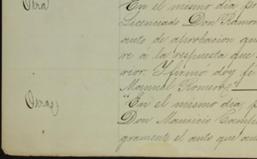 Otra
En el mismo dia po
Licenciado Don Ramon
auto de aprobacion que
re á la respuesta que
rior. I firmó doy fe
Manuel Romero."
Otras
"En el mismo dia p
Don Mauricio
gramente el auto que an